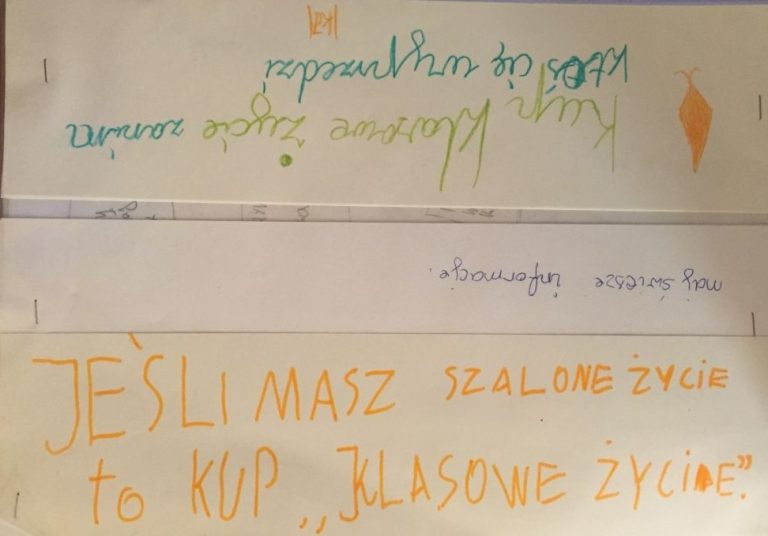 Kup klasowe życie zanim
ktoś cię wyprzedzi
naj świesze informacje.
JEŚLI MASZ SZALONE ŻYCIE
to KUP „KLASOWE ŻYCIE”.